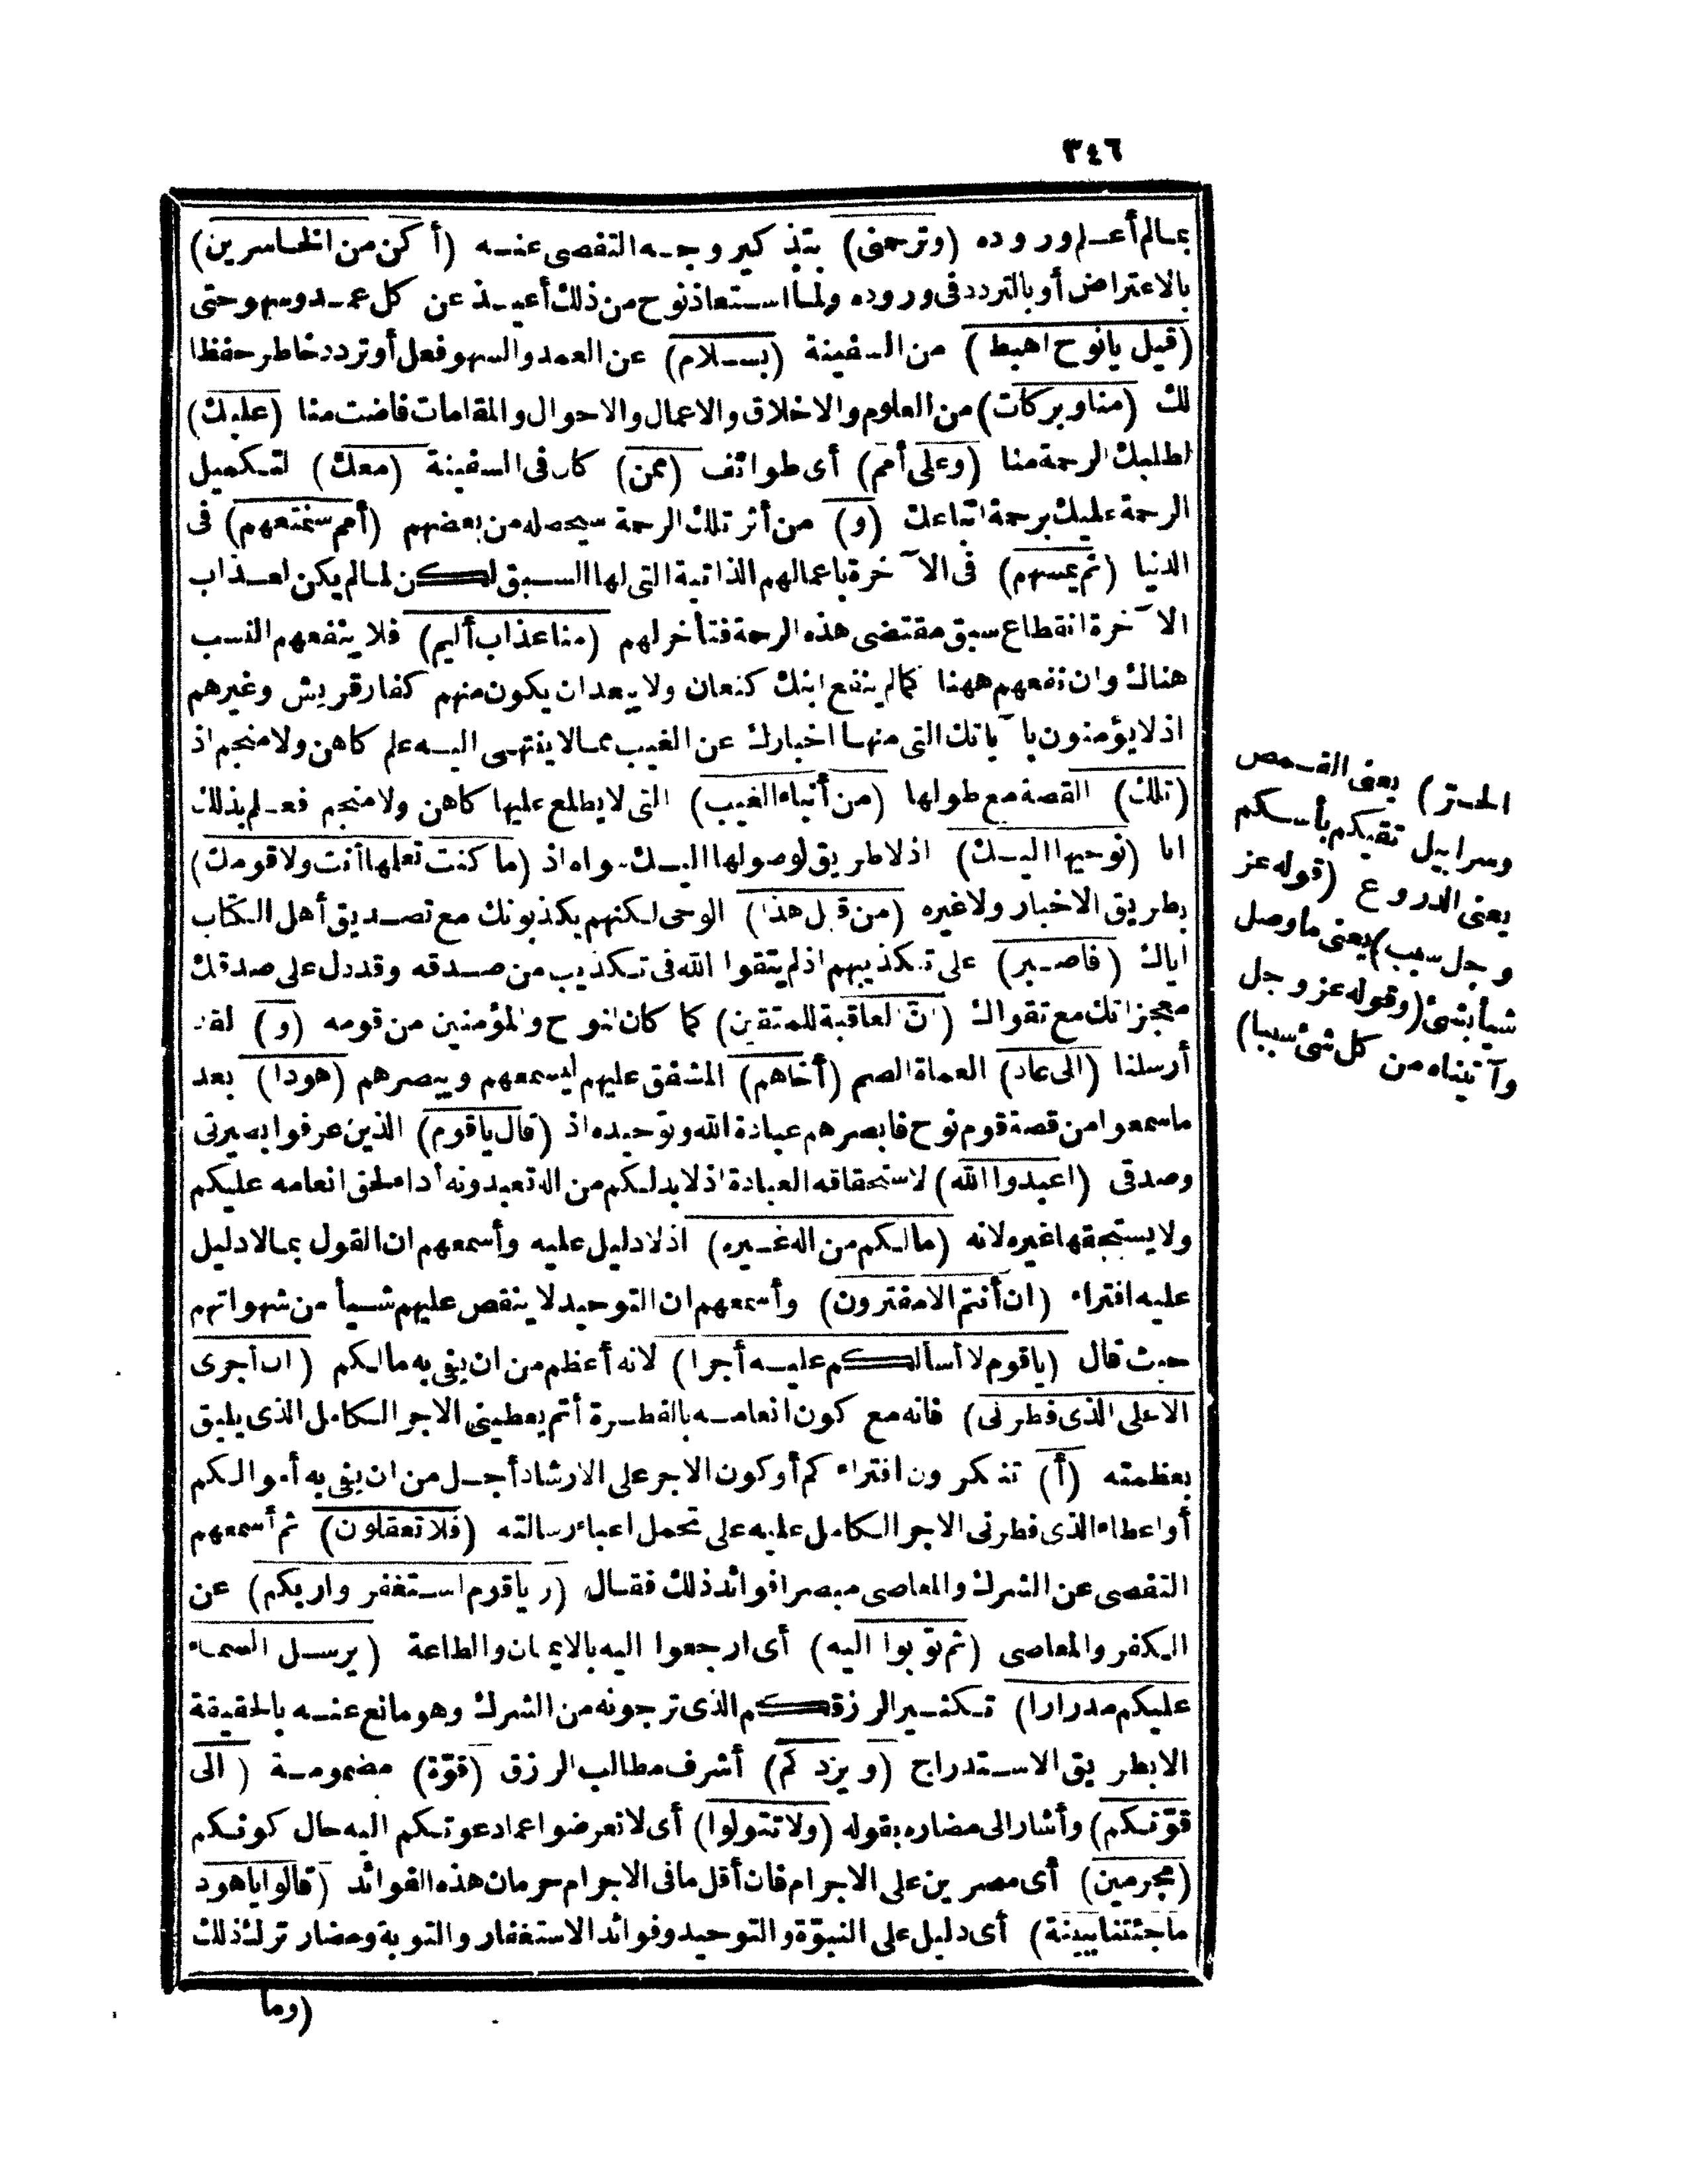 ٣٤٦
بمالم أعلم وروده (وترحمنى) بتذكير وجه التفصى عنه (أكن من الخاسرين)
بالاعتراض أو بالتردد فى وروده ولما استعاذ نوح من ذلك أعيذ عن كل عمد وسهو حتى
(قيل يانوح اهبط) من السفينة (بسلام) عن العمد والسهو فعل أو تردد خاطر حفظا
لك (منا وبركات) من العلوم والاخلاق والاعمال والاحوال والمقامات فاضت منا (عليك)
لطلبك الرحمة منا (وعلى أمم) أى طوائف (ممن) كان فى السفينة (معك) لتكميل
الرحمة عليك برحمة اتباعك (و) من أثر تلك الرحمة سيحصله من بعضهم (أمم سنمتعهم) فى
الدنيا (ثم يمسهم) فى الآخرة باعمالهم الذاتية التى لها السبق لكن لمالم يكن لعذاب
الآخرة انقطاع سبق مقتضى هذه الرحمة فتأخر لهم (منا عذاب أليم) فلا ينفعهم النسب
هناك وان نفعهم ههنا كمالم ينفع ابنك كنعان ولا يبعد ان يكون منهم كفار قريش وغيرهم
اذ لا يؤمنون بآياتك التى منها اخبارك عن الغيب مما لا ينتهى اليه علم كاهن ولا منجم اذ
(تلك) القصة مع طولها (من أنباء الغيب) التى لا يطلع عليها كاهن ولا منجم فعلم بذلك
انا (نوحيها اليك) اذ لا طريق لوصولها اليك سواه اذ (ما كنت تعلمها أنت ولا قومك)
بطريق الاخبار ولا غيره (من قبل هذا) الوحى لكنهم يكذبونك مع تصديق أهل الكتاب
اياك (فاصبر) على تكذيبهم اذ لم يتقوا الله فى تكذيب من صدقه وقد دل على صدقك
معجزاتك مع تقواك (ان العاقبة للمتقين) كما كان لنوح والمؤمنين من قومه (و) لقد
أرسلنا (الى عاد) العماة الصم (أخاهم) المشفق عليهم ليسمعهم ويبصرهم (هودا) بعد
ما سمعوا من قصة قوم نوح فابصرهم عبادة الله وتوحيده اذ (قال ياقوم) الذين عرفوا بصيرتى
وصدقى (اعبدوا الله) لاستحقاقه العبادة اذ لابد لكم من اله تعبدونه أداء لحق انعامه عليكم
ولا يستحقها غيره لانه (مالكم من اله غيره) اذ لا دليل عليه وأسمعهم ان القول بمالا دليل
عليه افتراء (ان أنتم الا مفترون) وأسمعهم ان التوحيد لا ينقص عليهم شيأ من شهواتهم
حيث قال (ياقوم لا أسألكم عليه أجرا) لانه أعظم من ان يفى به مالكم (ان أجرى
الا على الذى فطرنى) فانه مع كون انعامه بالفطرة أتم يعطينى الاجر الكامل الذى يليق
بعظمته (أ) تنكرون افتراءكم أو كون الاجر على الارشاد أجل من ان يفى به أموالكم
أو اعطاء الذى فطرنى الاجر الكامل عليه على تحمل اعباء رسالته (فلا تعقلون) ثم أسمعهم
التفصى عن الشرك والمعاصى مبصرا فوائد ذلك فقال (وياقوم استغفروا ربكم) عن
الكفر والمعاصى (ثم توبوا اليه) أى ارجعوا اليه بالايمان والطاعة (يرسل السماء
عليكم مدرارا) تكثير الرزقكم الذى ترجونه من الشرك وهو مانع عنه بالحقيقة
الا بطريق الاستدراج (ويزدكم) أشرف مطالب الرزق (قوّة) مضمومة (الى
قوّتكم) وأشار الى مضاره بقوله (ولا تتولوا) أى لا تعرضوا عما دعوتكم اليه حال كونكم
(مجرمين) أى مصرين على الاجرام فان أقل ما فى الاجرام حرمان هذه الفوائد (قالوا ياهود
ما جئتنا ببينة) أى دليل على النبوّة والتوحيد وفوائد الاستغفار والتوبة ومضار ترك ذلك
(وما
الحـتر) يعنى القمص
وسرابيل تقيكم بأسكم
يعنى الدروع (قوله عز
وجل سبب) يعنى ما وصل
شيأ بشئ (وقوله عز وجل
وآتيناه من كل شئ سببا)